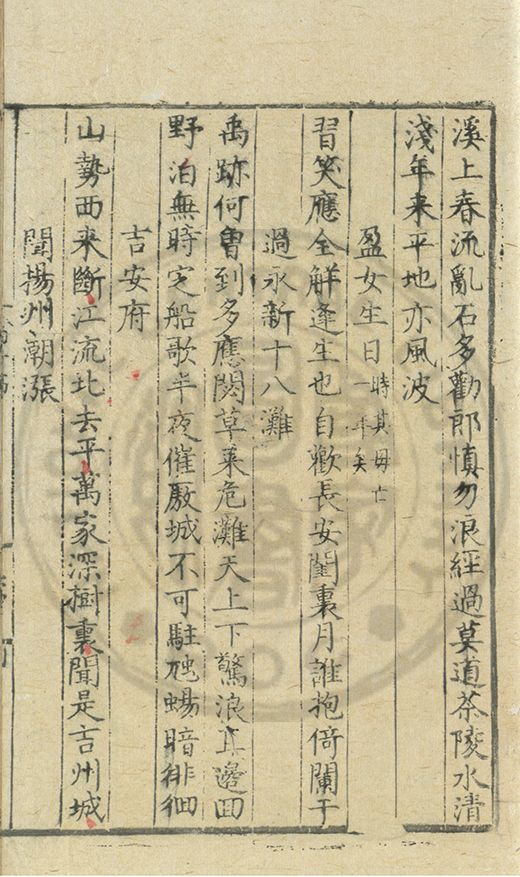 溪上春流亂石多勸郎慎勿浪經過莫道茶陵水清
淺年来平地亦風波
盈女生日時其毋亡一年矣
習笑應全解逢生也自歡長安閨裏月誰抱倚闌干
過永新十八灘
禹跡何曾到多應闕草萊危灘天上下驚浪耳邊回
野泊無時定船歌半夜催厫城不可駐虺蜴暗徘徊
吉安府
山勢西来斷江流北去平萬家深樹裏聞是吉州城
聞揚州潮漲